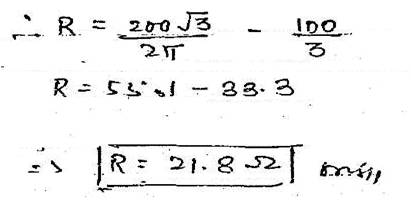 ∴ R = 200√3 / 2π - 100 / 3
R = 55.1 - 33.3
=> R = 21.8 Ω